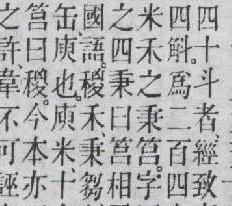 四十斗者、經致
四斛。爲二百四
米禾之秉筥。字
之四秉曰筥相
國語。稷禾、秉芻
缶、庾也。庾米、十
筥曰稷。今本亦
之許、韋不可誣